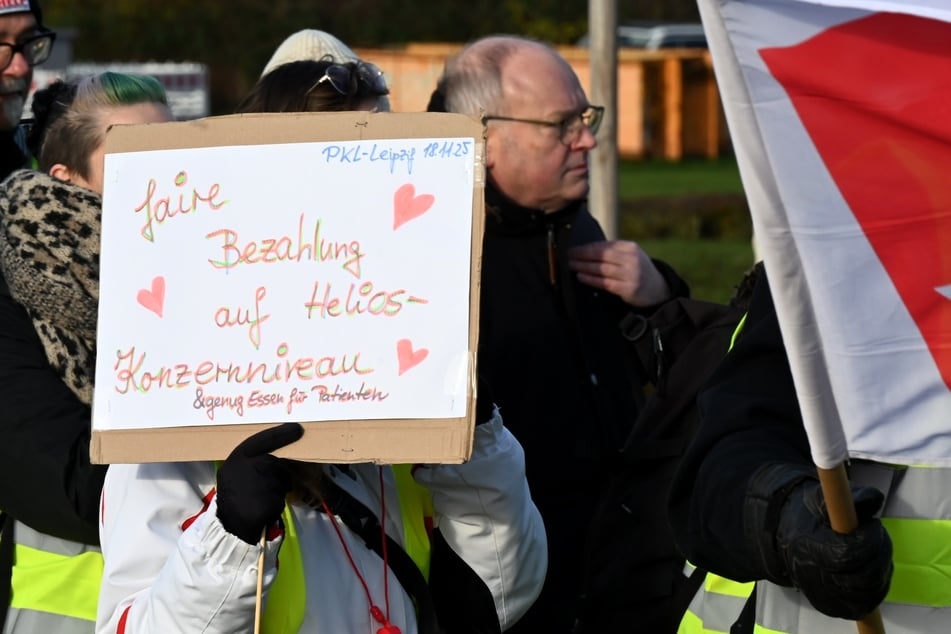 PKL-Leipzig 18.11.25
faire
Bezahlung
auf Helios-
Konzernniveau
& genug Essen für Patienten